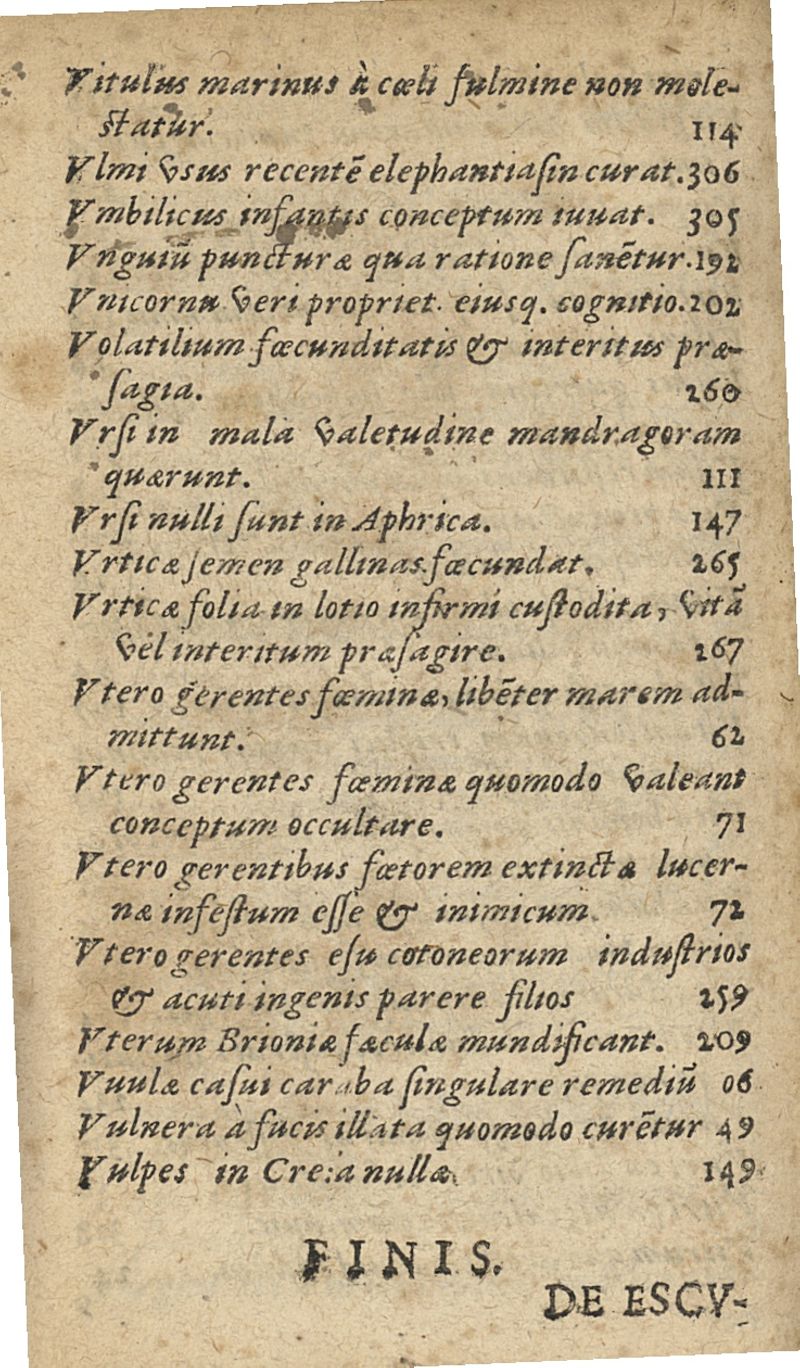 Vitulus marinus à cœli fulmine non mole-
statur. 114
Vlmi vsus recentē elephantiasin curat. 306
Vmbilicus infantis conceptum iuuat. 305
Vnguiū puncturæ qua ratione sanētur. 192
Vnicornu veri propriet. eiusq. cognitio. 202
Volatilium fœcunditatis & interitus præ-
sagia. 260
Vrsi in mala valetudine mandragoram
quærunt. 111
Vrsi nulli sunt in Aphrica. 147
Vrticæ semen gallinas fœcundat. 265
Vrticæ folia in lotio infirmi custodita, vitā
vel interitum præsagire. 267
Vtero gerentes fœminæ, libēter marem ad-
mittunt. 62
Vtero gerentes fœminæ quomodo valeant
conceptum occultare. 71
Vtero gerentibus fœtorem extinctæ lucer-
næ infestum esse & inimicum. 72
Vtero gerentes esu cotoneorum industrios
& acuti ingenis parere filios 259
Vterum Brioniæ fæculæ mundificant. 209
Vuulæ casui caraba singulare remediū 06
Vulnera à fucis illata quomodo curētur 49
Vulpes in Cre:a nullæ 149
FINIS.
DE ESCV-